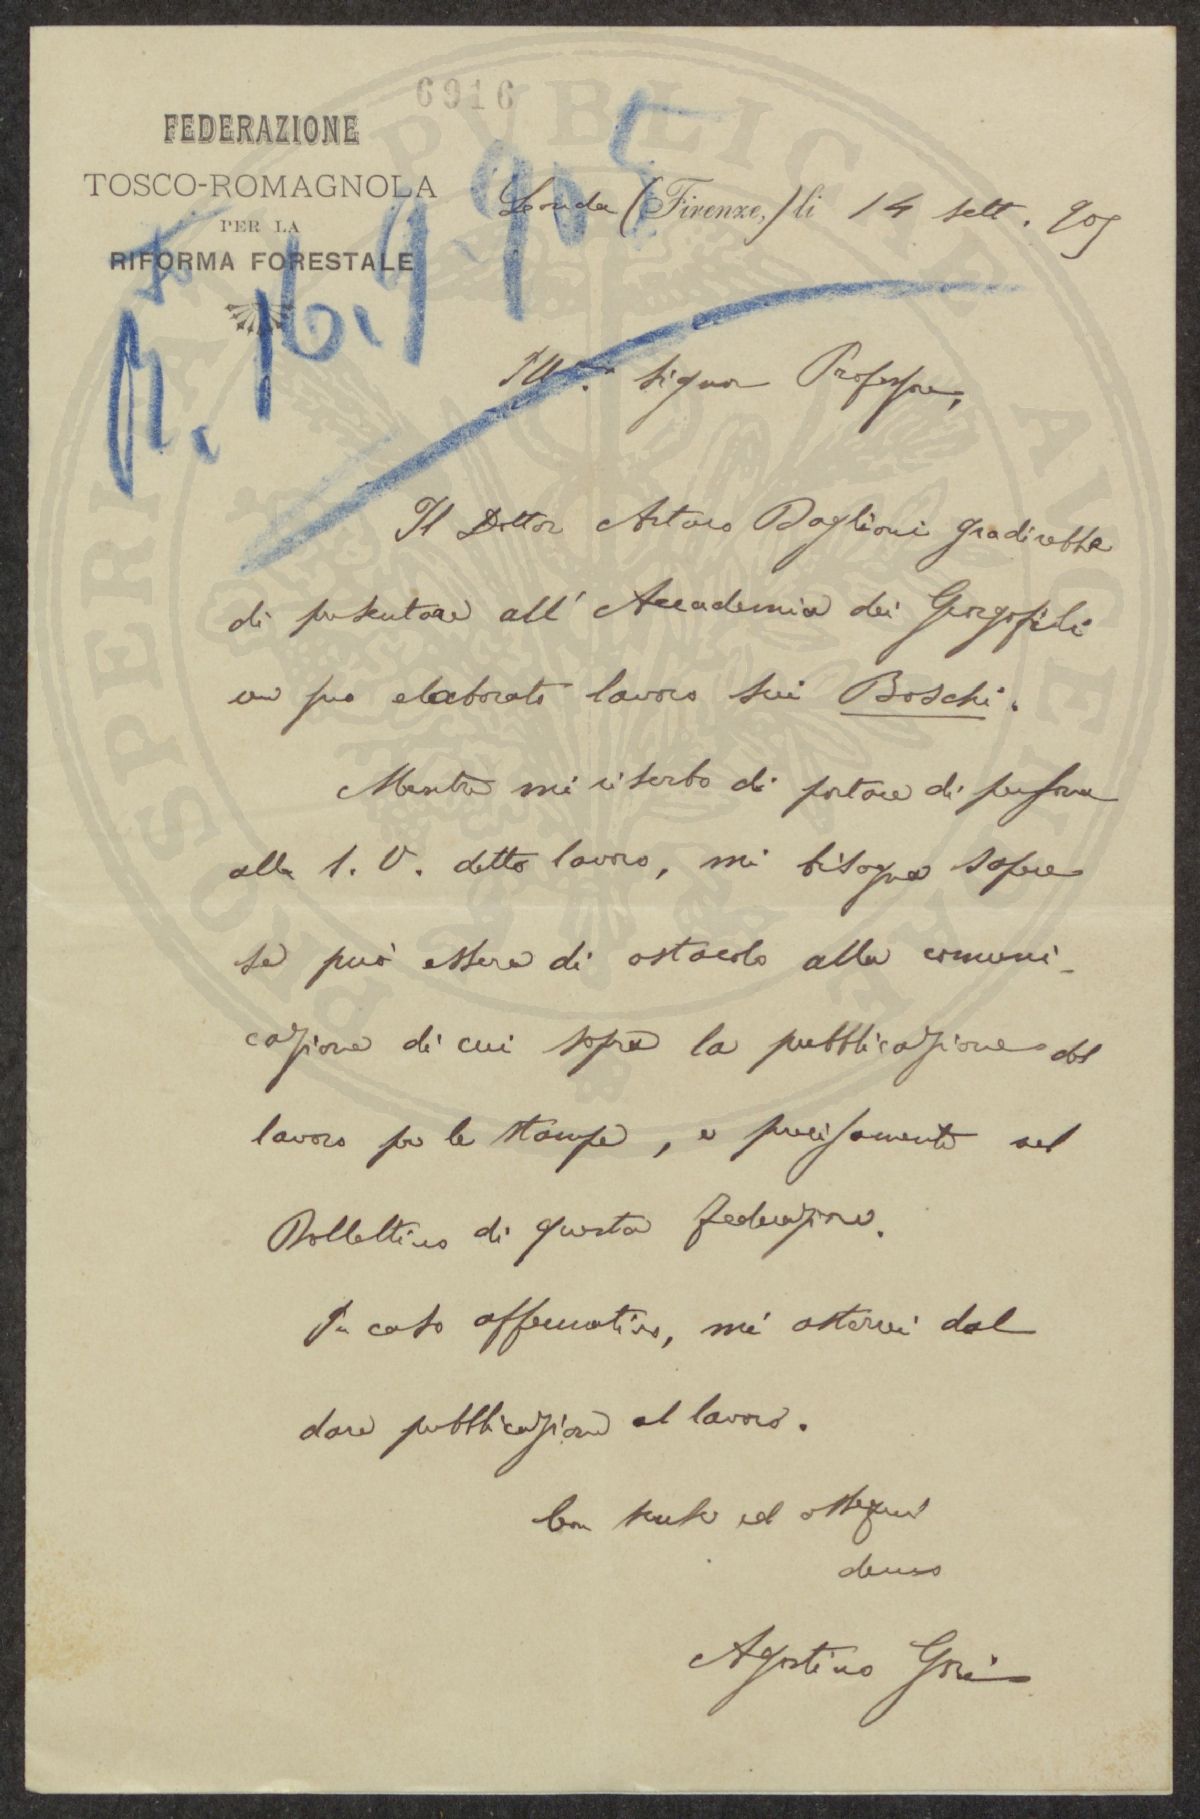 6916
FEDERAZIONE
TOSCO-ROMAGNOLA
PER LA
RIFORMA FORESTALE
Londa (Firenze,) li 14 sett. 905
R. 16.9.905
Ill.mo Signor Professore,
Il Dottor Arturo Baglioni gradirebbe
di presentare all' Accademia dei Georgofili
un suo elaborato lavoro sui Boschi.
Mentre mi riserbo di portare di persona
alla S. V. detto lavoro, mi bisogna sapere
se può essere di ostacolo alla comuni-
cazione di cui sopra la pubblicazione del
lavoro per le stampe, e precisamente nel
Bollettino di questa Federazione.
In caso affermativo, mi asterrei dal
dare pubblicazione al lavoro.
Con scuse ed ossequi
devmo
Agostino Gori
PROSPERITATI PUBLICAE AUGENDAE